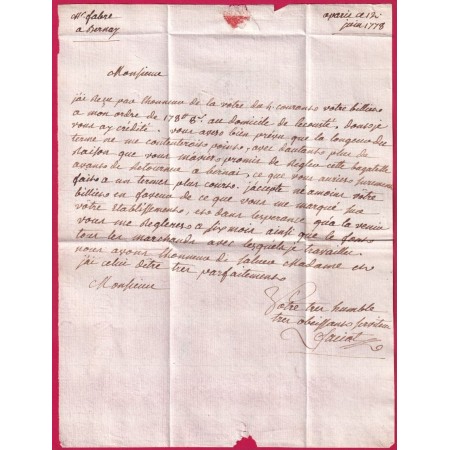 Mr fabre
a Bernay
a paris ce 12
juin 1778
Monsieur
j'ai reçu par l'honneur de la votre du 4 courant votre billiers
a mon ordre de 178# 8s. au domicile de lecourt, dont je
vous ay crédité. vous aves bien prévu que la longueur du
terme ne me contenteroit point, avec d'autent plus de
raison que vous m'avies promis de regler cette bagatelle
avant de retourner a bernai, ce que vous auries surement
fait a un termer plus court. j'accepte néamoins votre
billiers en faveur de ce que vous me marqué par
votre Etablissement, et dans l'esperance qu'a l'avenir
vous me reglerer a six mois ainsi que le font
tous les marchands avec lesquels je travaille.
nous avons l'honneur de saluer Madame et
j'ai celui d'etre tres parfaitement
Monsieur
Votre tres humble
tres obeissant serviteur